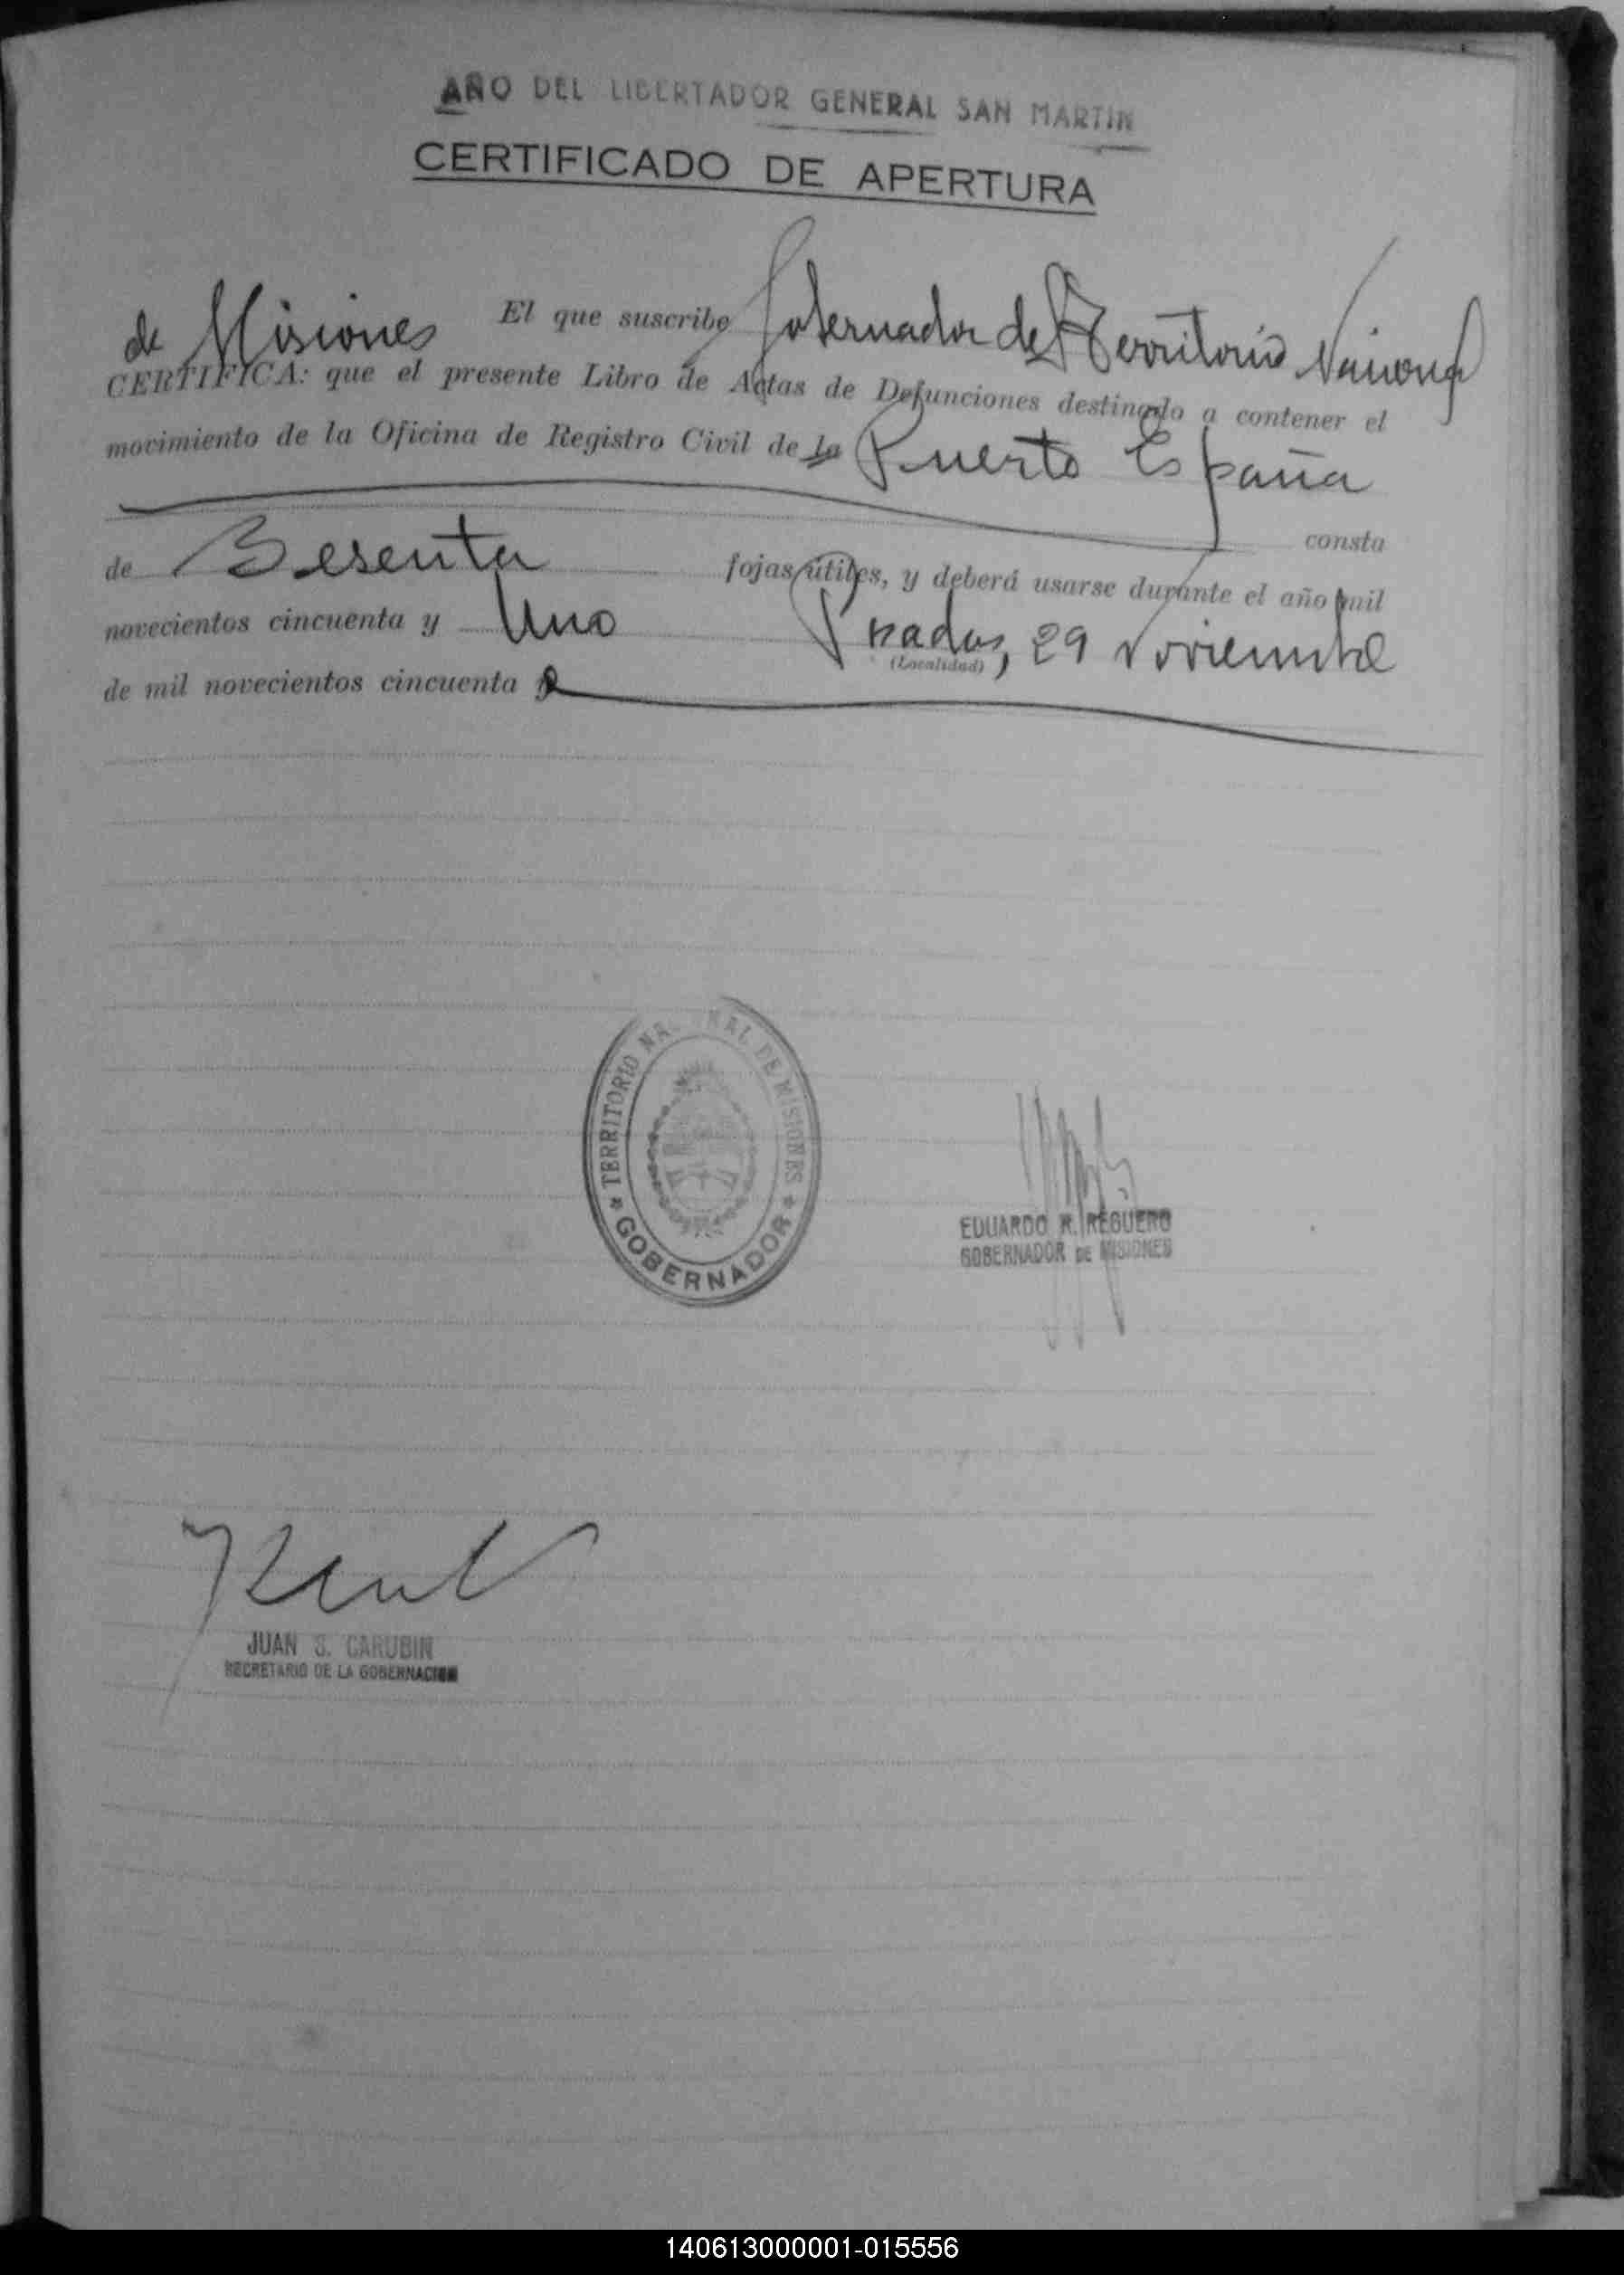 AÑO DEL LIBERTADOR GENERAL SAN MARTIN
CERTIFICADO DE APERTURA
El que suscribe Gobernador del Territorio Nacional
de Misiones
CERTIFICA: que el presente Libro de Actas de Defunciones destinado a contener el
movimiento de la Oficina de Registro Civil de la Puerto España
consta
de Sesenta fojas útiles, y deberá usarse durante el año mil
novecientos cincuenta y Uno Posadas, 29 Noviembre
(Localidad)
de mil novecientos cincuenta
* TERRITORIO NACIONAL DE MISIONES *
GOBERNADOR
EDUARDO R. REGUERO
GOBERNADOR DE MISIONES
JUAN S. CARUBIN
SECRETARIO DE LA GOBERNACION
140613000001-015556